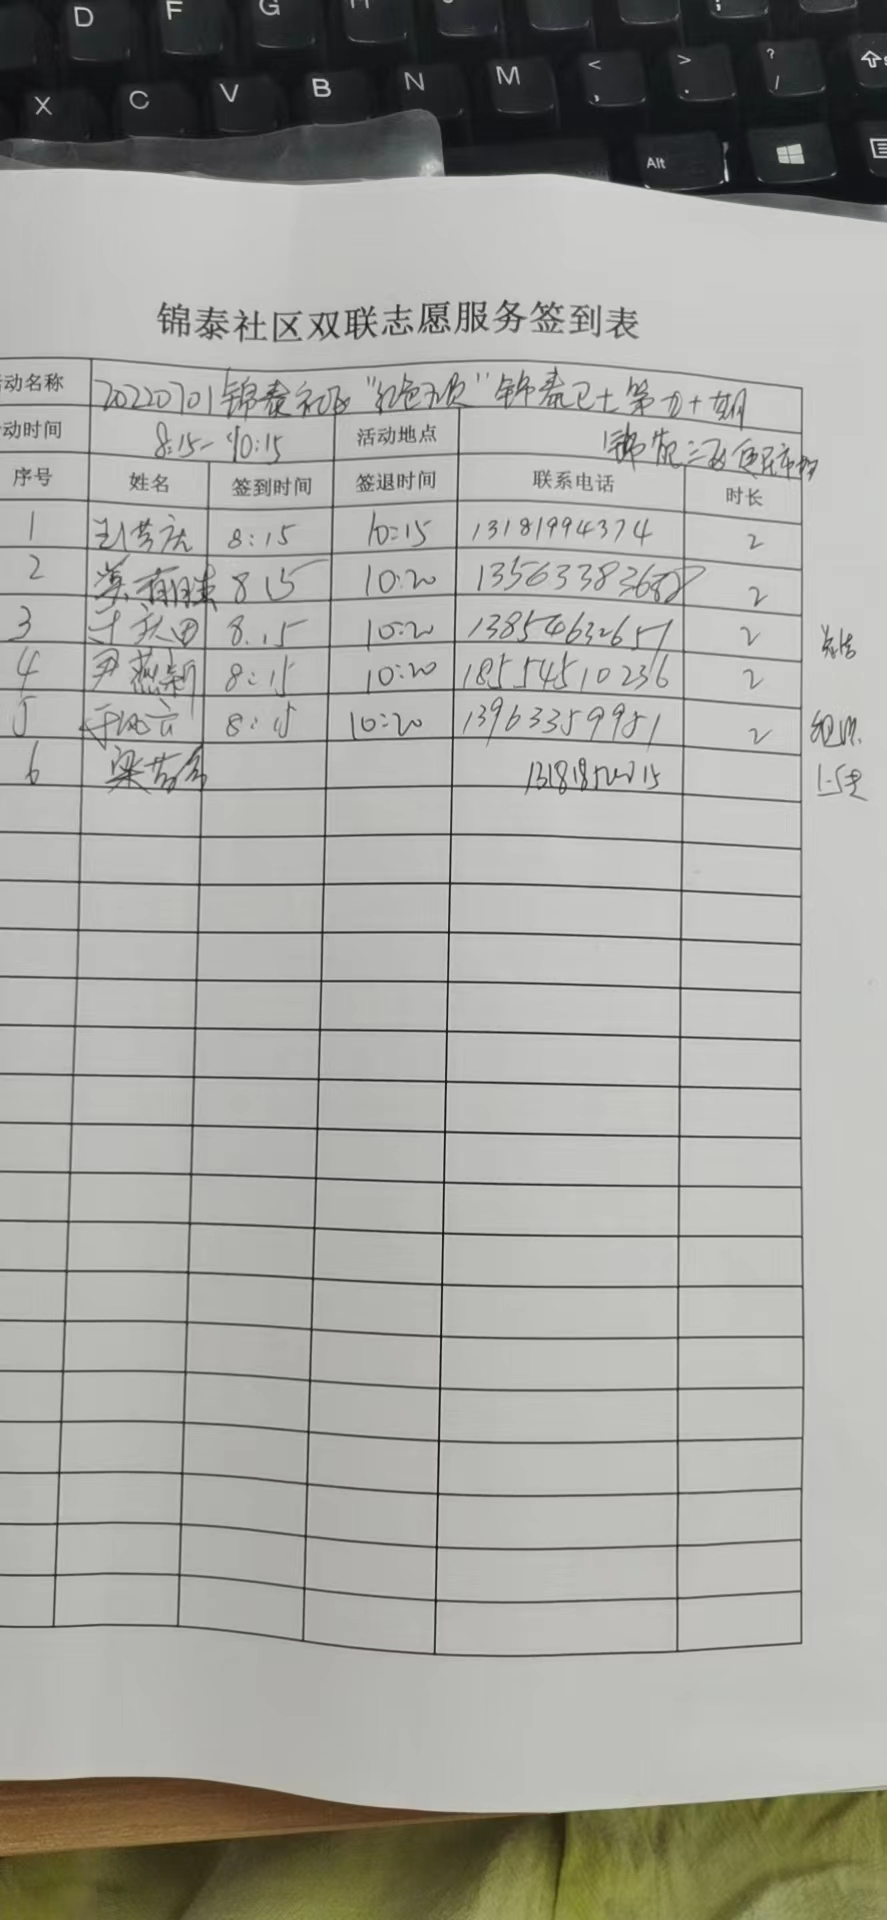 D F G H
X C V B N M < , > . ? /
Alt
锦泰社区双联志愿服务签到表
动名称 20220701锦泰社区“红色 ”锦泰卫士第九十期
动时间 8:15-10:15 活动地点 锦苑三区便民市场
序号 姓名 签到时间 签退时间 联系电话 时长
1 8:15 10:15 13181994374 2
2 8 15 10:20 2
3 8.15 10:20 13854632651 2
4 尹燕新 8:15 10:20 18554510236 2
5 8:15 10:20 13963359951 2
6 梁
组织
1-5